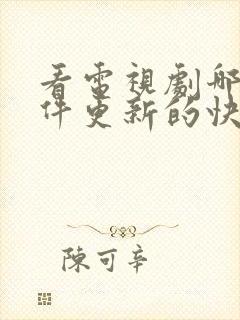 看電視劇哪
件更新的快
陳可辛